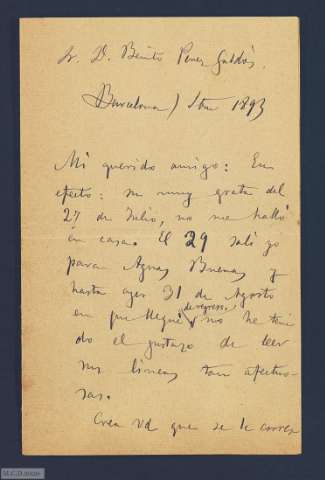 Sr. D. Benito Perez Galdós.
Barcelona 1 Stbre 1893
Mi querido amigo: En
efecto: su muy grata del
27 de Julio, no me halló
en casa. El 29 salí yo
para Aguas Buenas y
hasta ayer 31 de Agosto
en que llegué de regreso, no he teni
do el gustazo de leer
sus líneas tan afectuo-
sas.
Crea Vd que se le corres